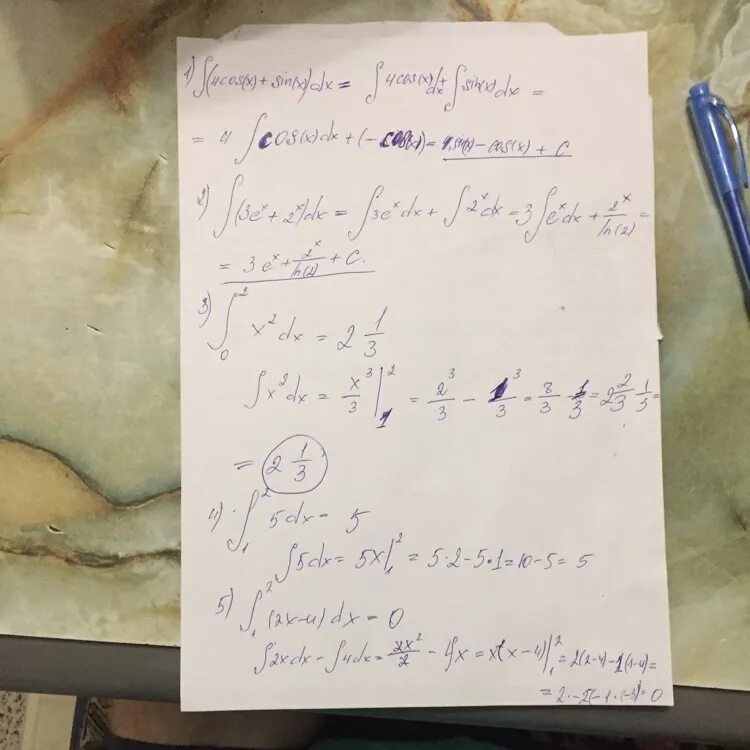 1) ∫(4cos(x) + sin(x))dx = ∫4cos(x)dx + ∫sin(x)dx =
= 4 ∫cos(x)dx + (-cos(x)) = 4 sin(x) - cos(x) + C
2) ∫(3e^x + 2^x)dx = ∫3e^x dx + ∫2^x dx = 3∫e^x dx + 2^x/ln(2) =
= 3e^x + 2^x/ln(2) + C.
3) ∫₀² x² dx = 2 1/3
∫x² dx = x³/3 |₁² = 2³/3 - 1³/3 = 8/3 - 1/3 = 2 2/3 - 1/3 =
= 2 1/3
4) ∫₁² 5dx = 5
∫5dx = 5x|₁² = 5·2-5·1=10-5=5
5) ∫₁² (2x-4)dx = 0
∫2xdx - ∫4dx = 2x²/2 - 4x = x(x-4)|₁² = 2(2-4)-1(1-4)=
= 0